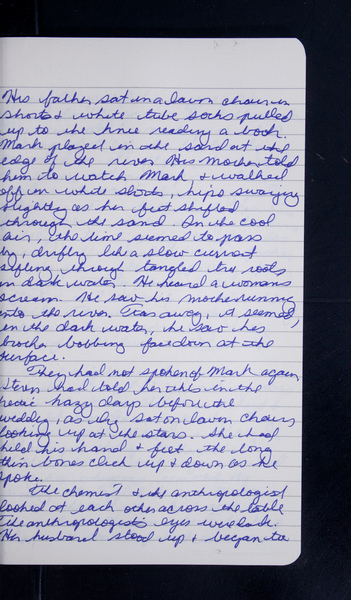 His father sat in a lawn chair in
shorts & white tube socks pulled
up to the knee reading a book.
Mark played in the sand at the
edge of the river. His mother told
him to watch Mark & walked
off in white shorts, hips swaying
slightly as her feet shifted
through the sand. In the cool
air, the time seemed to pass
by, drifting like a slow current
sifting through tangled tree roots
in dark water. He heard a womans
scream. He saw his mother running
into the river. Far away, it seemed,
in the dark water, he saw his
brother bobbing facedown at the
surface.
They had not spoken of Mark again
had told her this in the
hazy days before the
wedding, as they sat on lawn chairs
looking up at the stars. She had
held his hand & felt the long
thin bones click up & down as he
spoke.
The chemist & the anthropologist
looked at each other across the table
The anthropologists eyes were dark.
Her husband stood up & began to